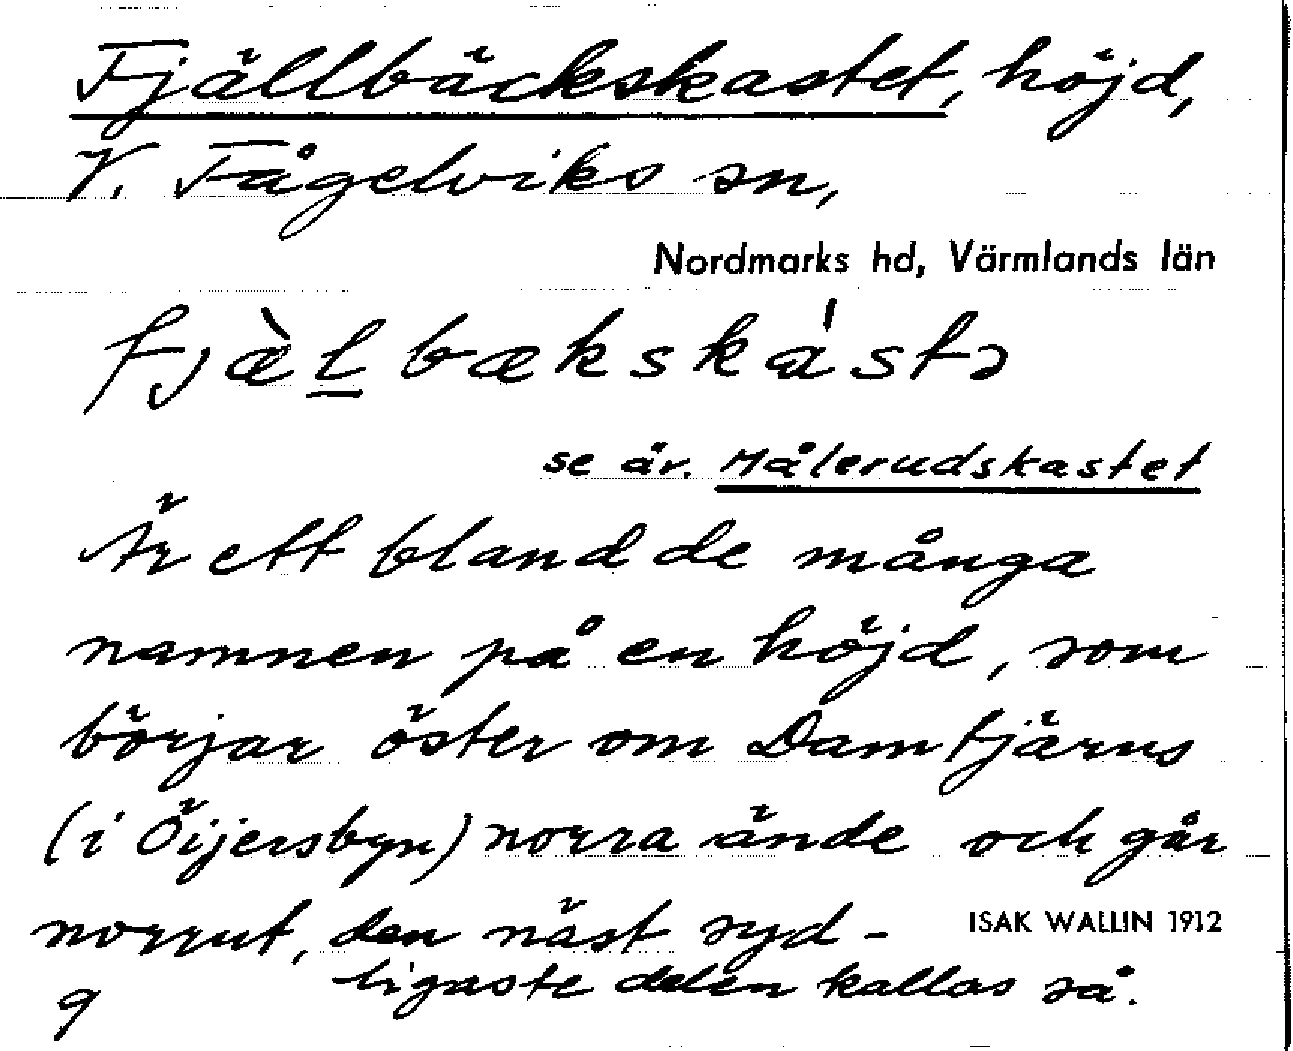 Fjällbäckskastet, höjd,
V. Fågelviks sn,
Nordmarks hd, Värmlands län
fjæ̀l bækskástə
se äv. Målerudskastet
Är ett bland de många
namnen på en höjd, som
börjar öster om Damtjärns
(i Öijersbyn) norra ände och går
norrut, den näst syd-
ISAK WALLIN 1912
ligaste delen kallas så.
9